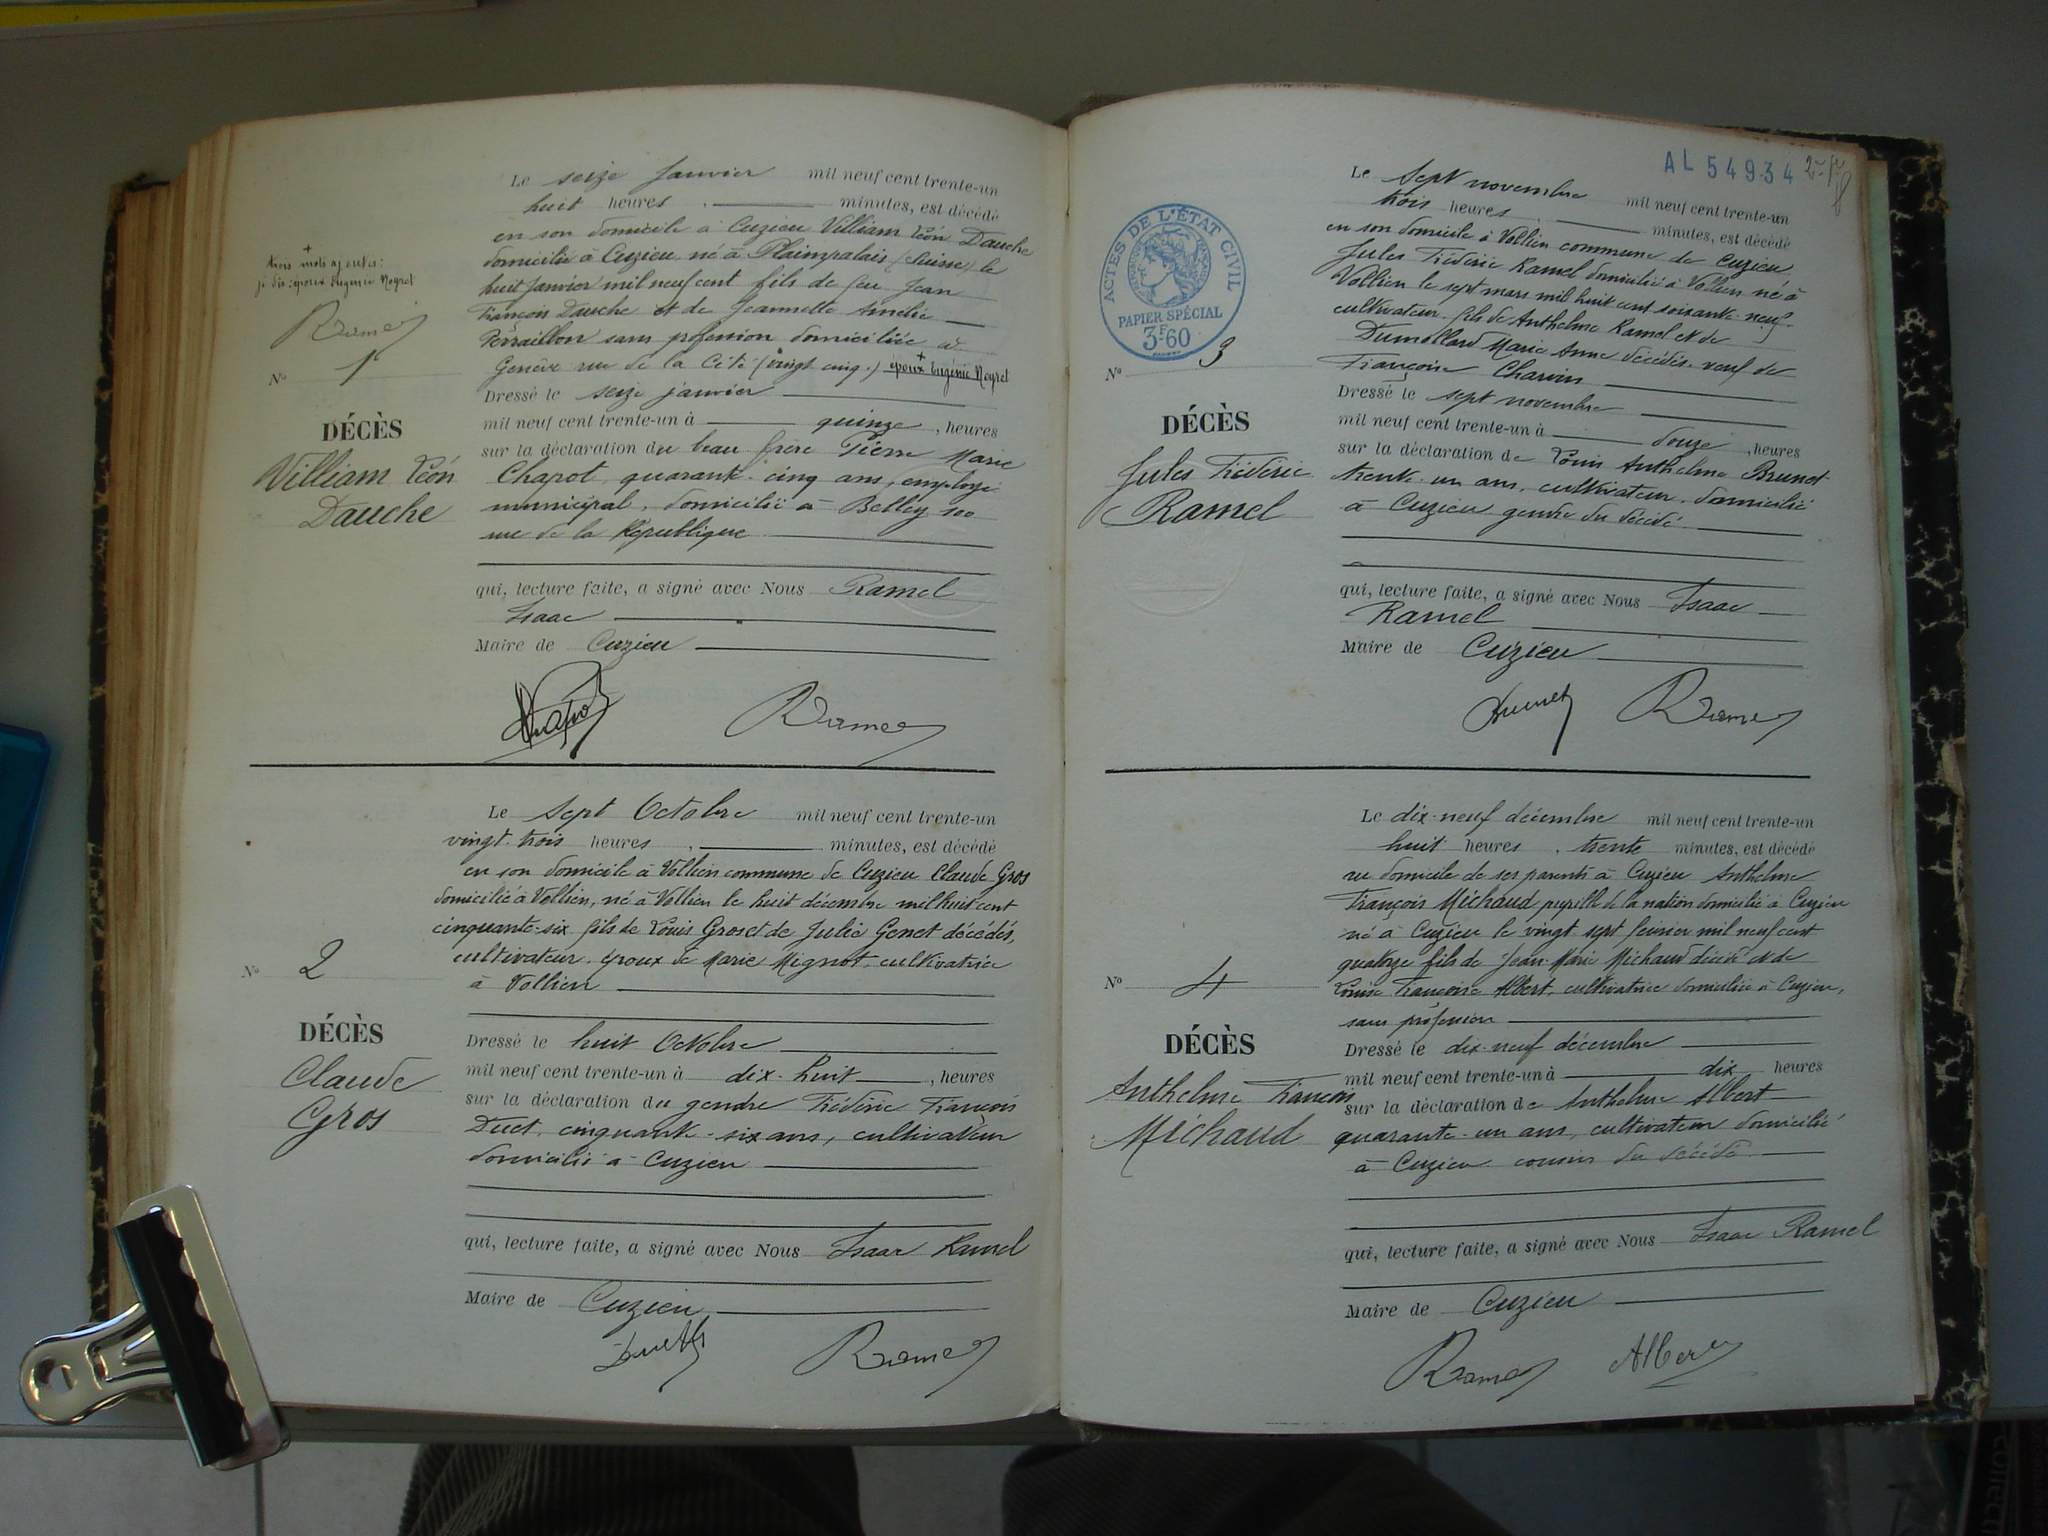 Le seize Janvier mil neuf cent trente-un
huit heures, minutes, est décédé
en son domicile à Cuzieu Villiam Léon Dauche
domicilié à Cuzieu, né à Plaimpalais (Suisse) le
huit Janvier mil neuf cent fils de feu Jean
François Dauche et de Jeannette Amélie
Perraillon sans profession domiciliée à
Genève rue de la Cité (vingt cinq.) + époux Eugénie Neyret
+
trois mots ajoutés:
je dis: époux Eugénie Neyret
Ramel
N° 1
DÉCÈS
Villiam Léon
Dauche
Dressé le seize janvier
mil neuf cent trente-un à quinze, heures
sur la déclaration du beau frère Pierre Marie
Chapot, quarante-cinq ans, employé
municipal, domicilié à Belley 100
rue de la République
qui, lecture faite, a signé avec Nous Ramel
Isaac
Maire de Cuzieu
Chapot Ramel
Le sept Octobre mil neuf cent trente-un
vingt-trois heures, minutes, est décédé
en son domicile à Vollien commune de Cuzieu Claude Gros
domicilié à Vollien, né à Vollien le huit décembre mil huit cent
cinquante-six fils de Louis Gros et de Julie Genet décédés,
cultivateur. époux de Marie Mignot, cultivatrice
à Vollien
N° 2
DÉCÈS
Claude
Gros
Dressé le huit Octobre
mil neuf cent trente-un à dix-huit, heures
sur la déclaration du gendre Frédéric François
Duet, cinquante-six ans, cultivateur
domicilié à Cuzieu
qui, lecture faite, a signé avec Nous Isaac Ramel
Maire de Cuzieu
Ramel
AL 54934
ACTES DE L'ÉTAT CIVIL
PAPIER SPÉCIAL
3F60
Le Sept novembre mil neuf cent trente-un
trois heures, minutes, est décédé
en son domicile à Vollien commune de Cuzieu
Jules Frédéric Ramel domicilié à Vollien né à
Vollien le sept mars mil huit cent soixante-neuf.
cultivateur. fils de Anthelme Ramel et de
Dumollard Marie Anne décédés. veuf de
Françoise Charvin
N° 3
DÉCÈS
Jules Frédéric
Ramel
Dressé le sept novembre
mil neuf cent trente-un à douze, heures
sur la déclaration de Louis Anthelme Brunet
trente-un ans, cultivateur, domicilié
à Cuzieu gendre du décédé
qui, lecture faite, a signé avec Nous Isaac
Ramel
Maire de Cuzieu
Brunet Ramel
Le dix-neuf décembre mil neuf cent trente-un
huit heures, trente minutes, est décédé
au domicile de ses parents à Cuzieu Anthelme
François Michaud pupille de la nation domicilié à Cuzieu
né à Cuzieu le vingt-sept février mil neuf cent
quatorze fils de Jean-Marie Michaud décédé et de
Louise Françoise Albert, cultivatrice domiciliée à Cuzieu,
sans profession
N° 4
DÉCÈS
Anthelme François
Michaud
Dressé le dix-neuf décembre
mil neuf cent trente-un à dix heures
sur la déclaration de Anthelme Albert
quarante-un ans, cultivateur domicilié
à Cuzieu cousin du décédé
qui, lecture faite, a signé avec Nous Isaac Ramel
Maire de Cuzieu
Ramel Albert